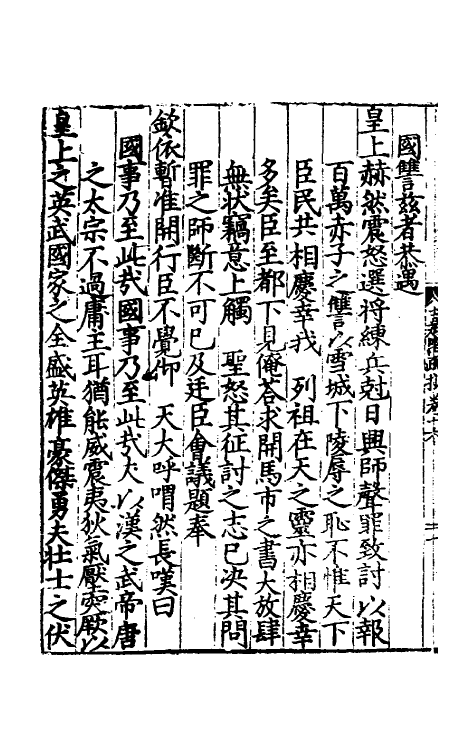 國讐兹者恭遇
皇上赫然震怒選將練兵尅日興師聲罪致討以報
百萬赤子之讐以雪城下陵辱之恥不惟天下
臣民共相慶幸我 列祖在天之靈亦相慶幸
多矣臣至都下見俺荅求開馬市之書大放肆
無状竊意上觸 聖怒其征討之志已决其問
罪之師斷不可已及廷臣會議題奉
欽依暫准開行臣不覺仰 天大呼喟然長嘆曰
國事乃至此㢤國事乃至此㢤夫以漢之武帝唐
之太宗不過庸主耳猶能威震夷狄氣壓突厥以
皇上之英武國家之全盛英雄豪傑勇夫壮士之伏